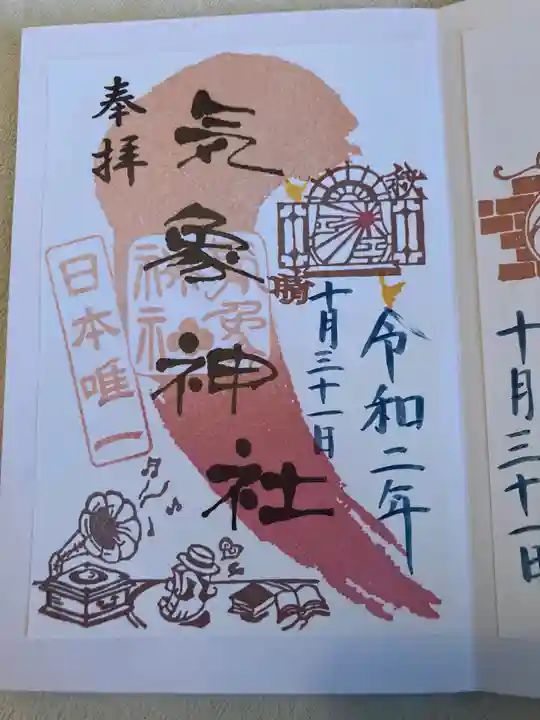 奉拝
気象神社
日本唯一
秋
晴
令和二年
十月三十一日
十月三十一日